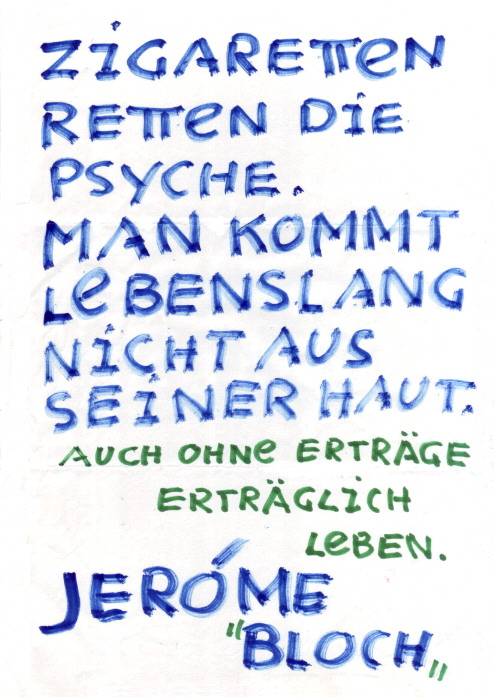 ZiGARETTeN
RETTeN DiE
PSYCHE.
MAN KOMMT
LeBENSLANG
NiCHT AUS
SEiNER HAUT.
AUCH OHNe ERTRÄGE
ERTRÄGLiCH
LeBEN.
JERÓME
"BLOCH"